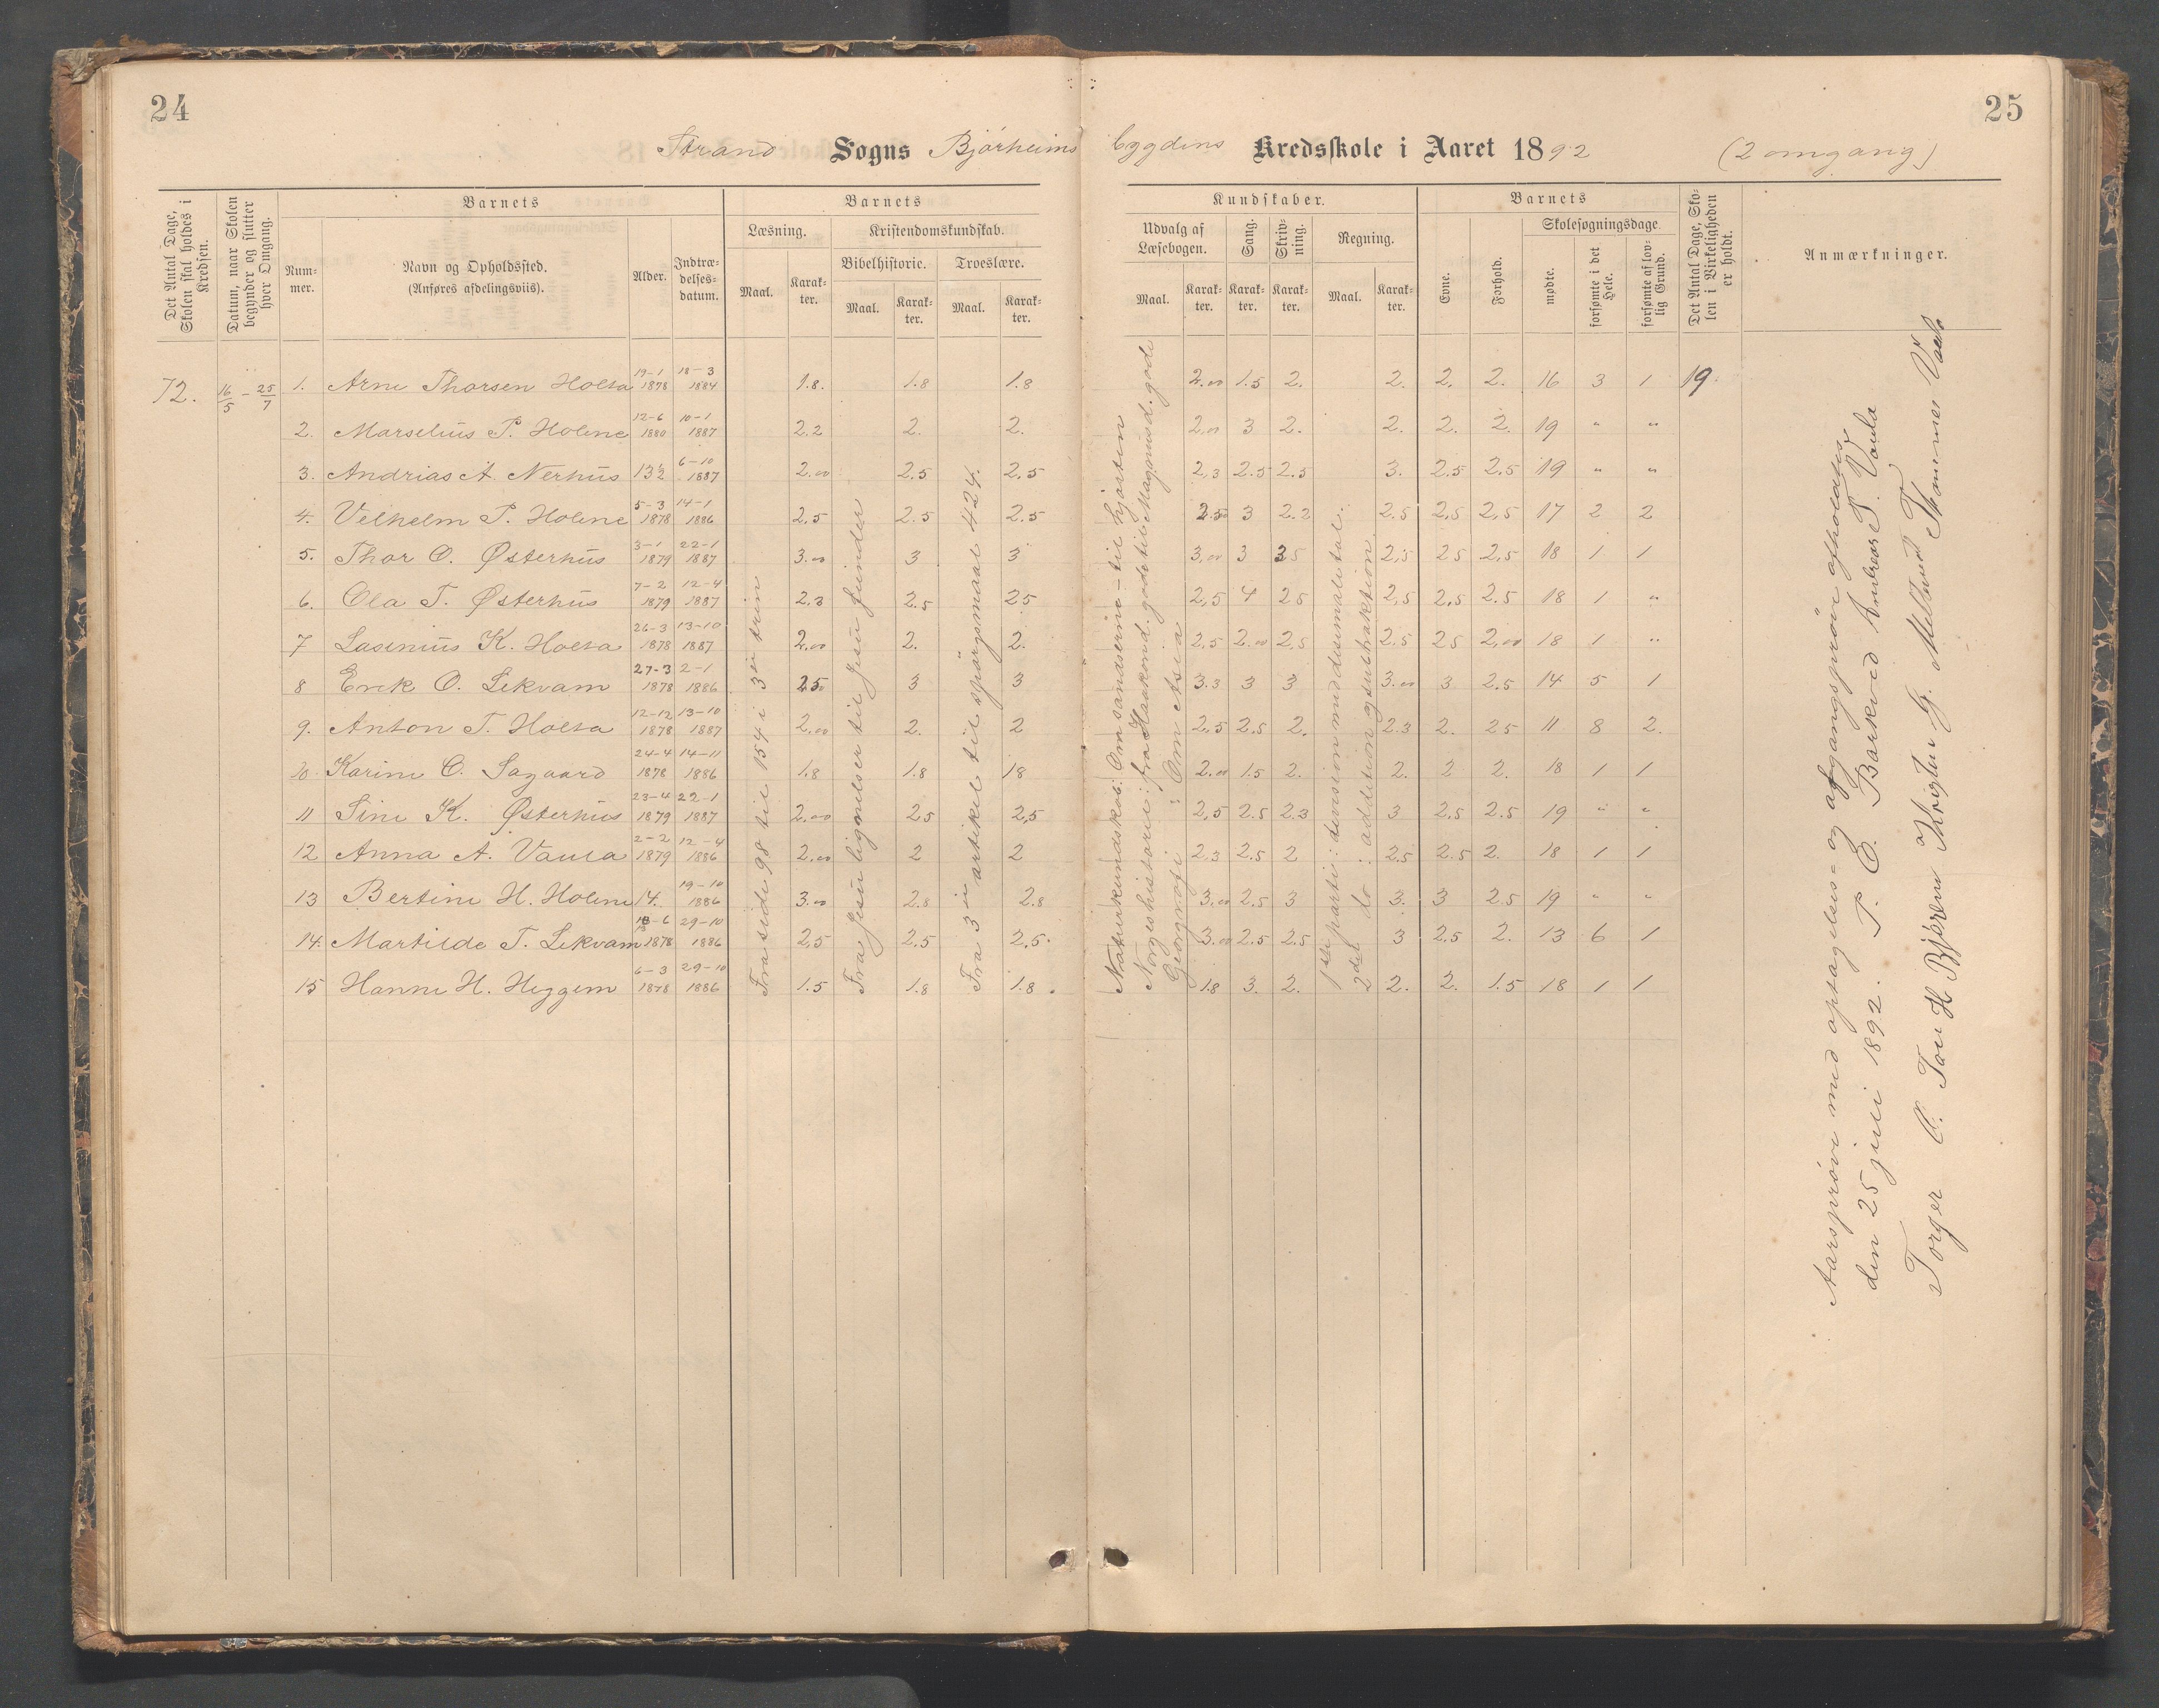 24
25
Strand Sogns Bjørheims bygdens Kredsskole i Aaret 1892 (2 omgang)
Det Antal Dage, Skolen skal holdes i Kredsen.
Datum, naar Skolen begynder og slutter hver Omgang.
Barnets
Num-mer.
Navn og Opholdssted.
(Anføres afdelingsviis).
Alder.
Indtræ-delses-datum.
Barnets
Læsning.
Maal.
Karak-ter.
Kristendomskundskab.
Bibelhistorie.
Maal.
Karak-ter.
Troeslære.
Maal.
Karak-ter.
Kundskaber.
Udvalg af Læsebogen.
Maal.
Karak-ter.
Sang.
Karak-ter.
Skriv-ning.
Karak-ter.
Regning.
Maal.
Karak-ter.
Barnets
Evne.
Forhold.
Skolesøgningsdage
mødte.
forsømte i det Hele.
forsømte af lov-lig Grund.
Det Antal Dage, Sko-len i Virkeligheden er holdt.
Anmærkninger.
72. 16/5 - 25/7 1. Arne Thorsen Holta 19-1 1878 18-3 1884 1.8. 1.8 1.8 2.00 1.5 2. 2. 2. 2. 16 3 1 19.
2. Marselius P. Holme 12-6 1880 10-1 1887 2.2 2. 2. 2.00 3 2. 2. 2. 2. 19 " "
3. Andrias A. Nerhus 13 1/2 6-10 1887 2.00 2.5 2.5 2.3 2.5 2.5 3. 2.5 2.5 19 " "
4. Velhelm P. Holme 5-3 1878 14-1 1886 2.5 2.5 2.5 2.5 3 2.2 2.5 2.5 2.5 17 2 2
5. Thor O. Østerhus 3-1 1879 22-1 1887 3.00 3 3 3.00 3 2.5 2.5 2.5 18 1 1
6. Ola T. Østerhus 7-2 1879 12-4 1887 2.3 2.5 25 2,5 4 25 2,5 2.5 2.5 18 1 "
7 Lasenius K. Holta 26-3 1878 13-10 1887 2.00 2. 2. 2,5 2.00 2,5 2.5 25 2,00 18 1 "
8 Erik O. Lekvam 27-3 1878 2-1 1886 2.5 3 3 3.3 3 3 3.00 3 2.5 14 5 1
9. Anton T. Holta 12-12 1878 13-10 1887 2.00 2. 2 2,5 2.5 2. 2.3 2. 25 11 8 2.
10. Karine O. Sagaard 24-4 1878 14-11 1886 1.8 1.8 18 2.00 1.5 2. 2. 2 2. 18 1 1
11 Sine K. Østerhus 23-4 1879 22-1 1887 2.00 25 2,5 2,5 2.5 2.3 3 2.5 2.5 19 " "
12 Anna A. Vaula 2-2 1879 12-4 1886 2.00 2 2 2.3 2.5 2 2.5 2.5 2. 18 1 1
13 Bertine H. Holme 14. 19-10 1886 3.00 2.8 2.8 3.00 2.5 3 3. 3 2.5 19 " "
14. Martilde T. Lekvam 1878 29-10 1886 2,5 2.5 2,5. 3.00 2.5 2.5 3 2,5 2. 13 6 1
15 Hanne H. Heggem 6-3 1878 29-10 1886 1.5 1.8 1.8. 1.8 3. 2. 2. 2. 1.5 18 1 1
Fra side 98 til 154 i 3die trin
Fra Jesu lignelser til Jesu fiender
Fra 3die artikel til spørgsmaal 424.
Naturkundskab: Om sandserne - til hjorten
Norgeshistorie: fra Haakon d. gode til Magnus d. gode
Geografi : Om Asia
1ste parti: division med desimaltal.
2det do : addition og subtraktion
Aarsprøve med optagelses- og afgangsprøve afholdtes
den 25 juli 1892. P. E. Barkved Andreas T. Vaula
Torger O. Tou H Bjøreim Kristen G. Thommes Vaula